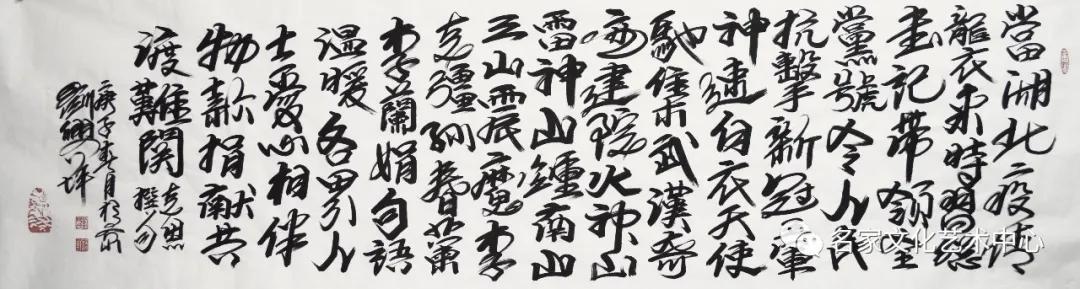 當湖北疫情
龍衣来時習總
書記带领全
黨號令人民
抗擊新冠軍
神速白衣天使
馳集武漢
建院火神山
雷神山鍾南山
三山震魔李
克彊孙春
李蘭娟句語
温暖各界人
士愛心相伴
物款捐献共
渡難関
庚子春月於
劉
名家文化艺术中心